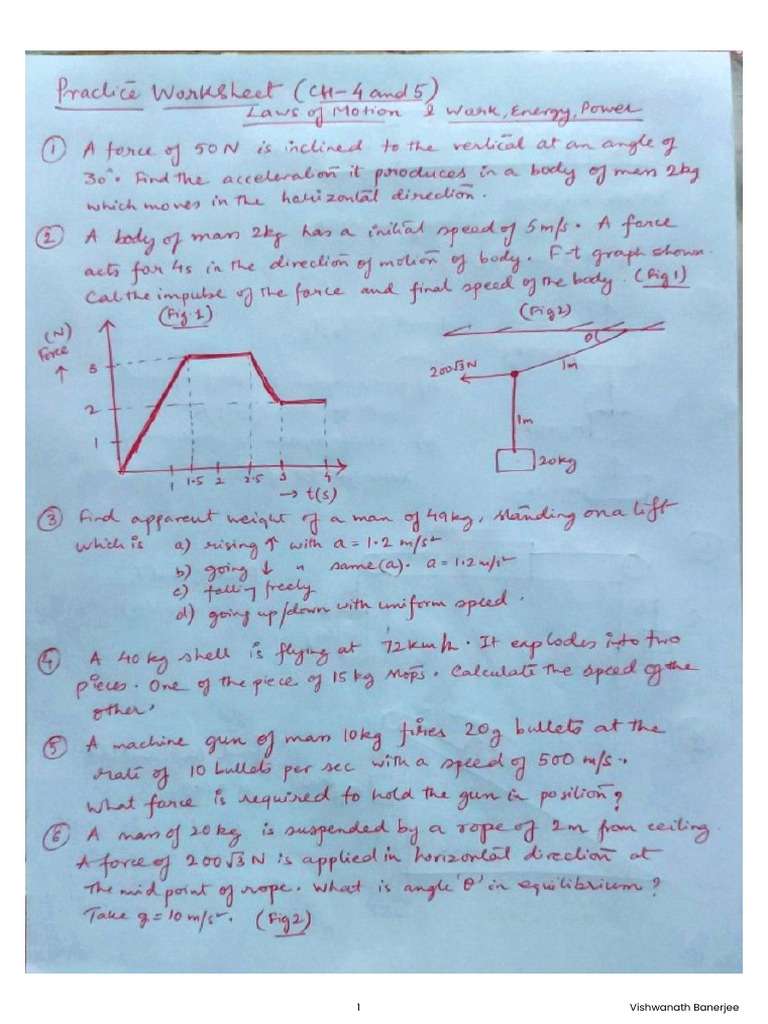 Practice Worksheet (CH-4 and 5)
Laws of Motion & Work, Energy, Power
① A force of 50N is inclined to the vertical at an angle of
30°. Find the acceleration it produces in a body of mass 2kg
which moves in the horizontal direction.
② A body of mass 2kg has a initial speed of 5m/s. A force
acts for 4s in the direction of motion of body. F-t graph shown.
Cal. the impulse of the force and final speed of the body. (Fig 1)
(Fig. 1)
(Fig 2)
(N)
Force
↑
3
2
1
1 1.5 2 2.5 3 4
→ t(s)
θ
200√3N
1m
1m
20kg
③ Find apparent weight of a man of 49kg, standing on a lift
which is a) rising ↑ with a = 1.2 m/s²
b) going ↓ " same (a). a = 1.2 m/s²
c) falling freely
d) going up/down with uniform speed.
④ A 40kg shell is flying at 72km/h. It explodes into two
pieces. One of the piece of 15kg stops. Calculate the speed of the
other.
⑤ A machine gun of mass 10kg fires 20g bullets at the
rate of 10 bullets per sec with a speed of 500 m/s.
What force is required to hold the gun in position?
⑥ A mass of 20kg is suspended by a rope of 2m from ceiling.
A force of 200√3N is applied in horizontal direction at
the mid point of rope. What is angle 'θ' in equilibrium?
Take g = 10 m/s². (Fig 2)
1
Vishwanath Banerjee